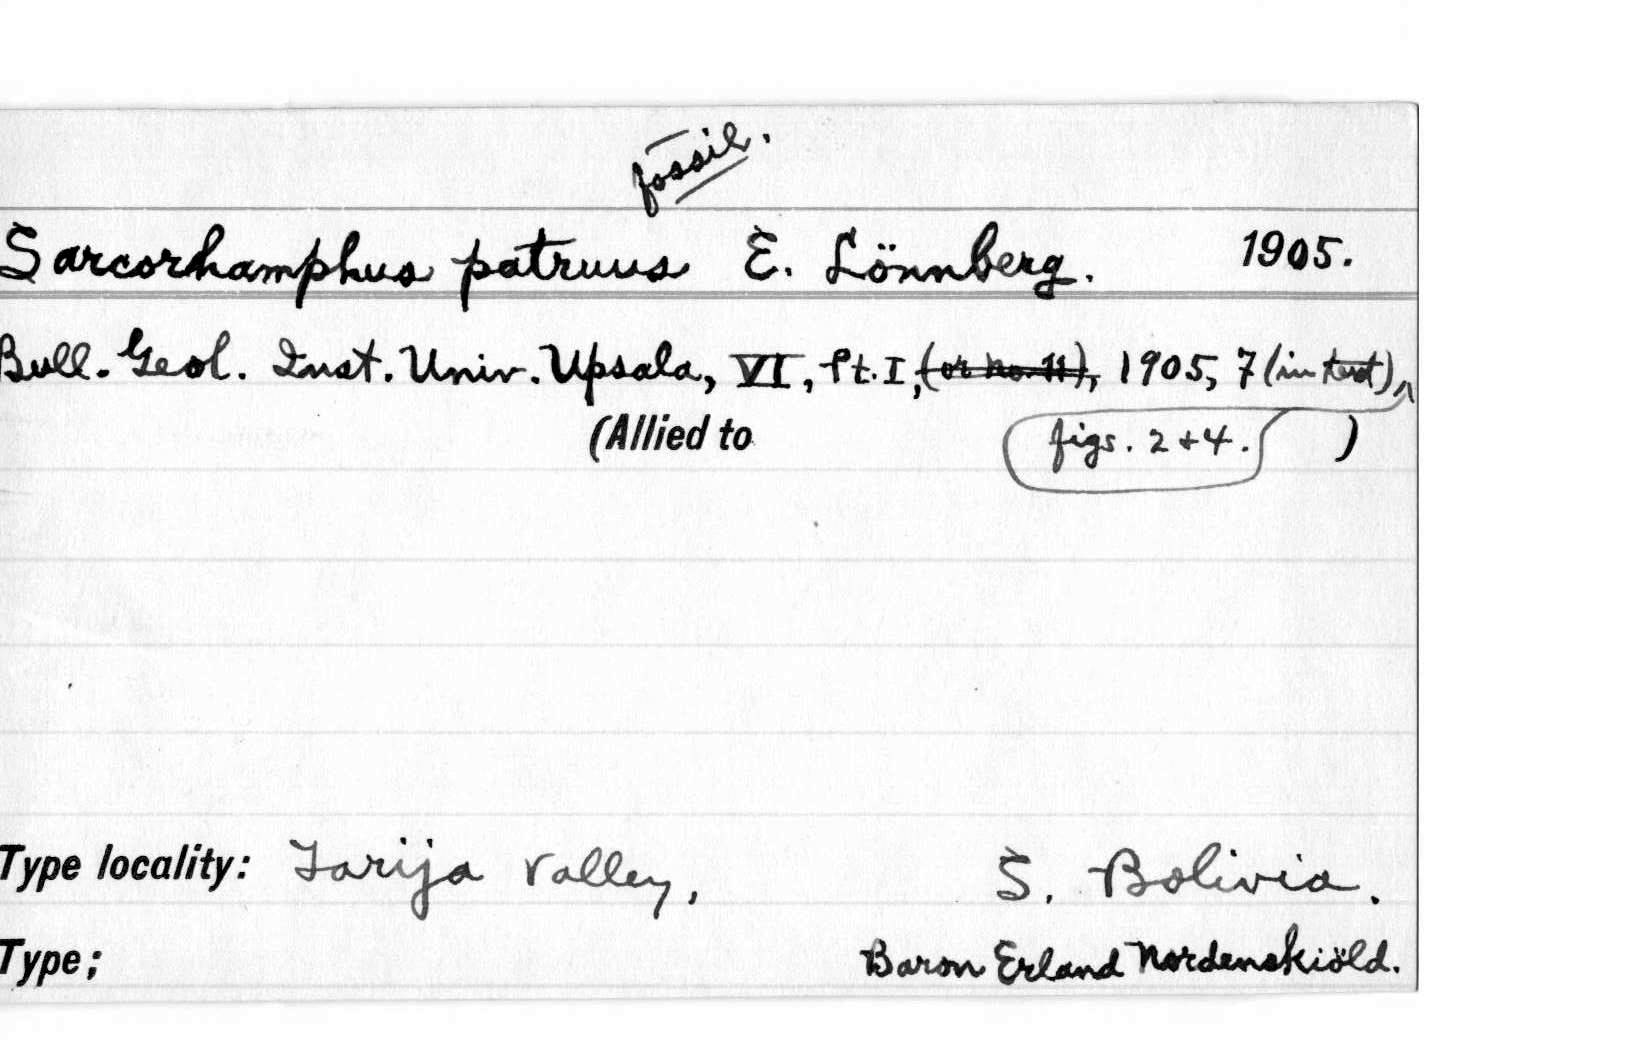 fossil.
Sarcorhamphus patruus E. Lönnberg. 1905.
Bull. Geol. Inst. Univ. Upsala, VI, Pt. I, (or no. 11), 1905, 7 (in text),^
(Allied to figs. 2 + 4. )
Type locality: Tarija Valley, S. Bolivia.
Type; Baron Erland Nordenskiöld.